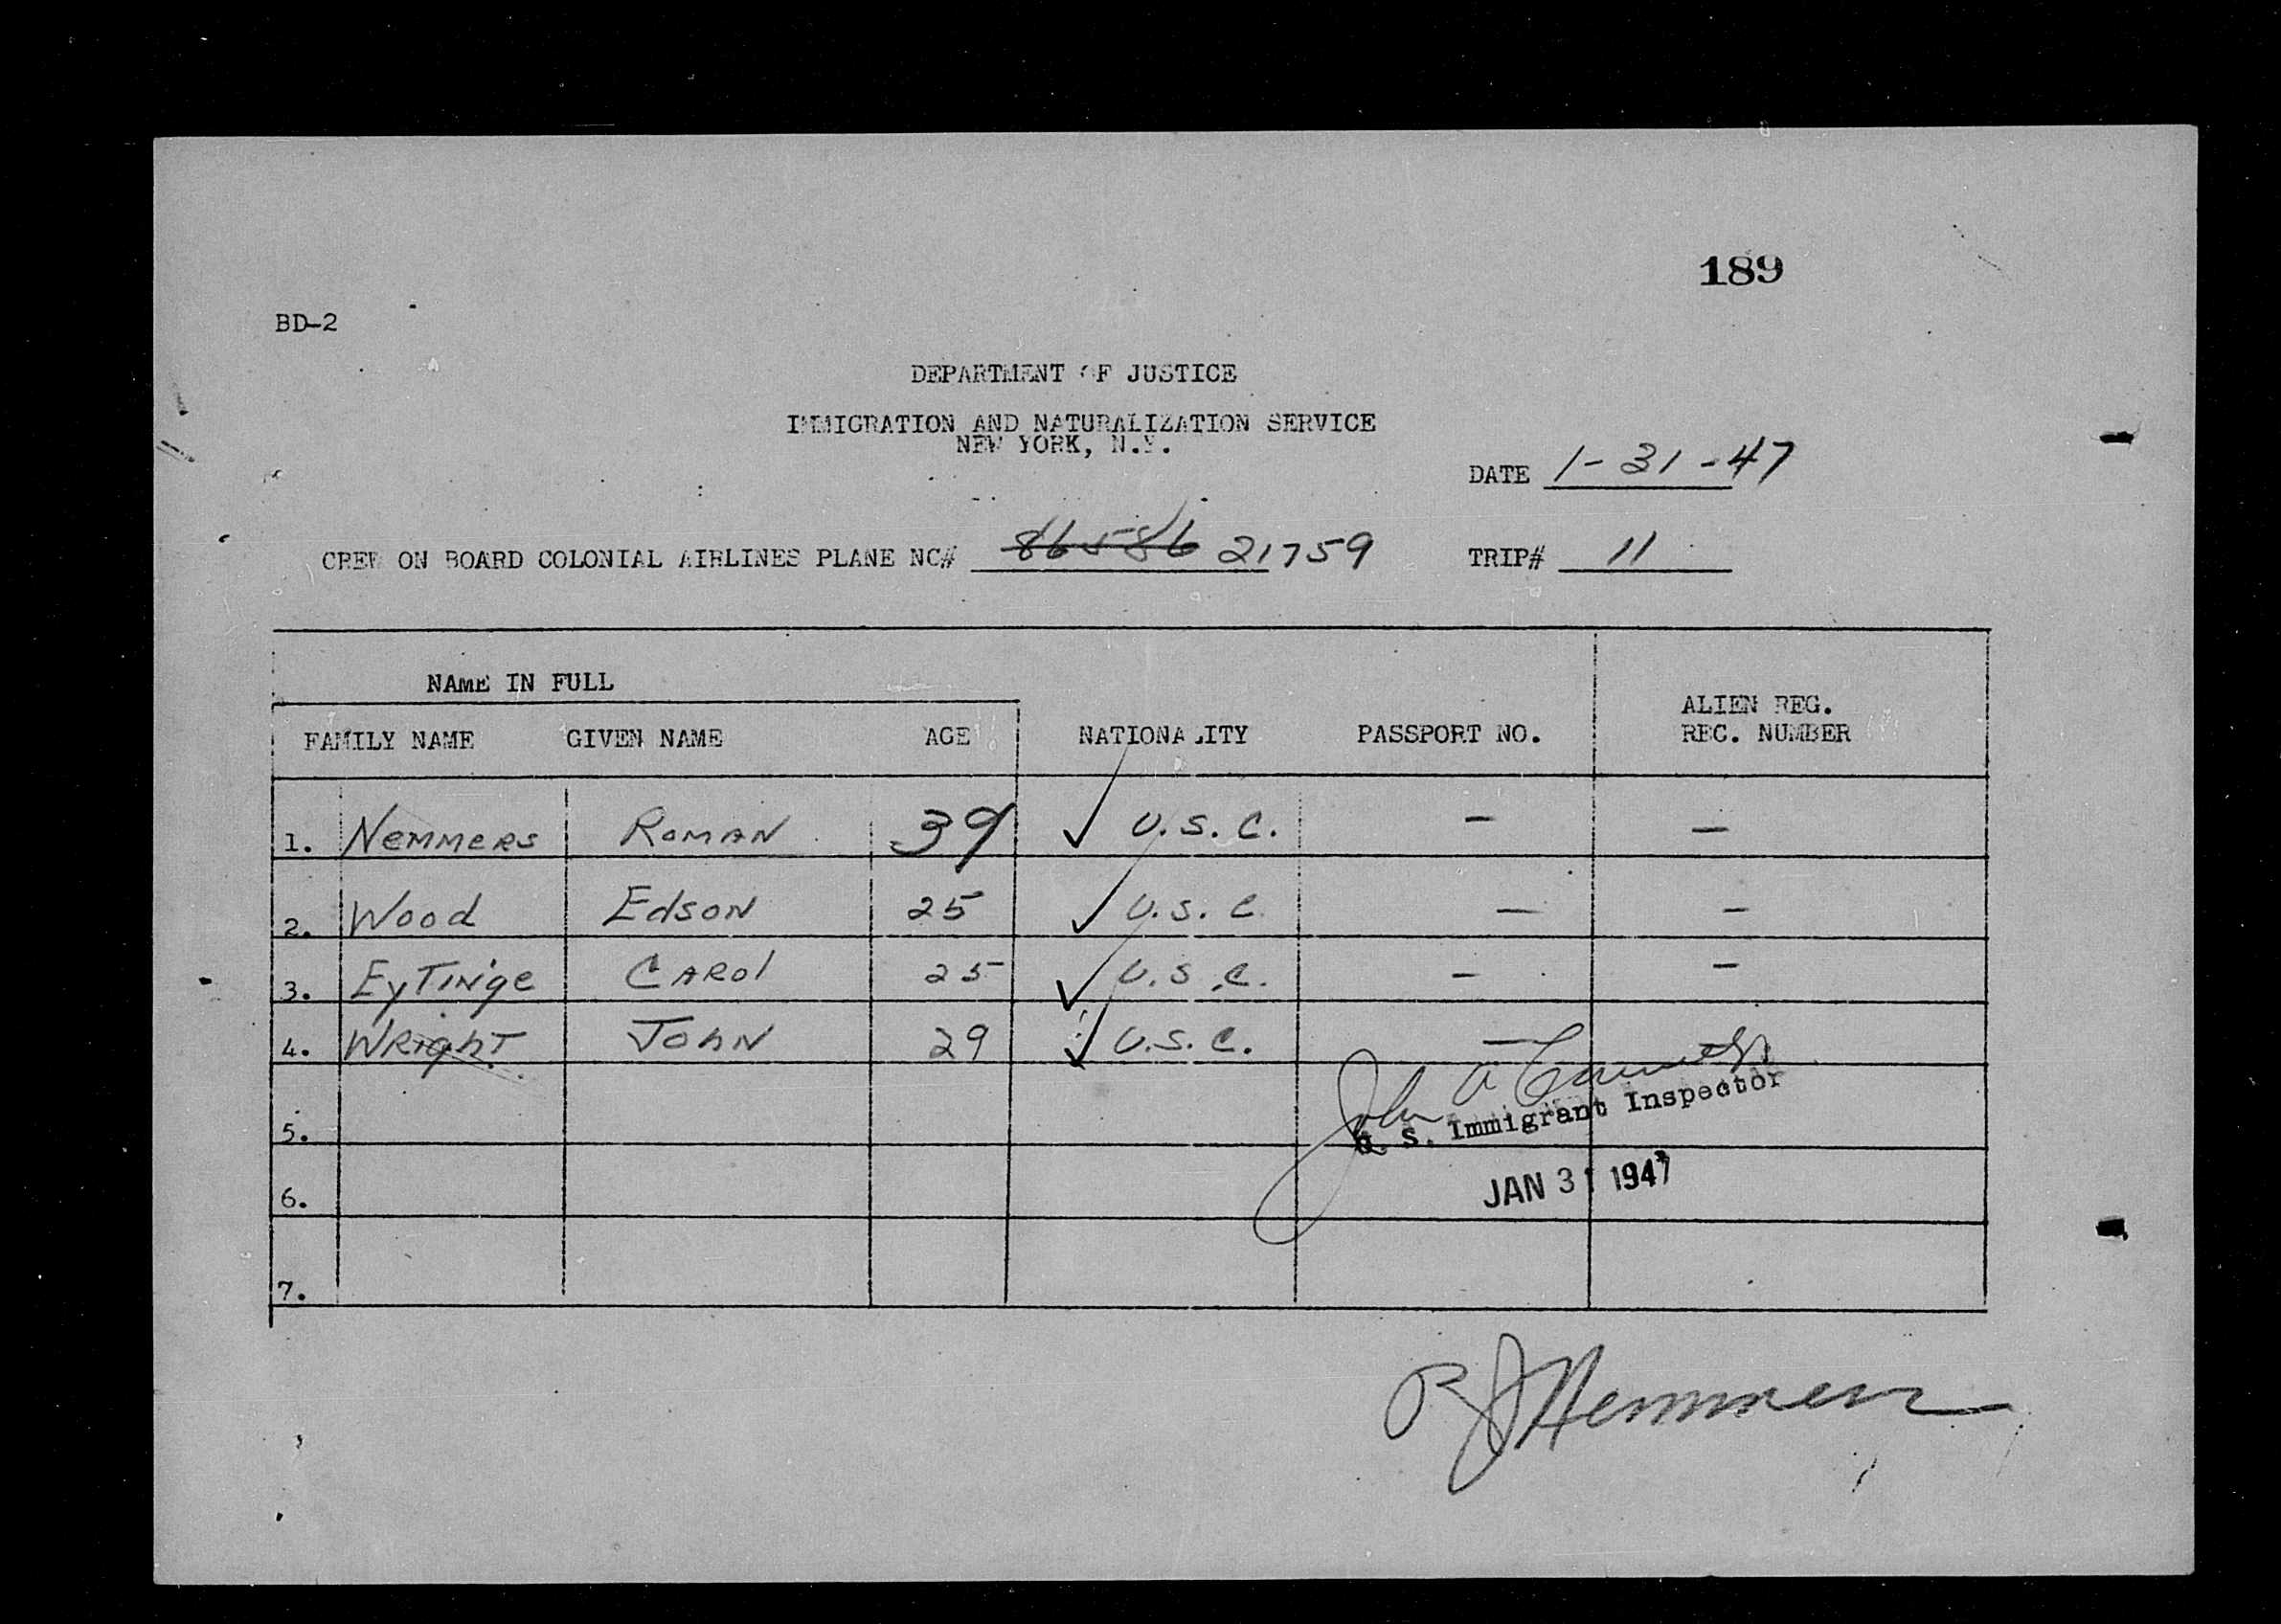 189
BD-2
DEPARTMENT OF JUSTICE
IMMIGRATION AND NATURALIZATION SERVICE
NEW YORK, N.Y.
DATE 1-31-47
CREW ON BOARD COLONIAL AIRLINES PLANE NC# 86586 21759 TRIP# 11
NAME IN FULL
FAMILY NAME GIVEN NAME AGE NATIONALITY PASSPORT NO. ALIEN REG. REC. NUMBER
1. Nemmers Roman 39 ✓ U.S.C. - -
2. Wood Edson 25 ✓ U.S.C. - -
3. EyTinge Carol 25 ✓ U.S.C. - -
4. Wright John 29 ✓ U.S.C. -
John A
U. S. Immigrant Inspector
5.
JAN 31 1947
6.
7.
R J Nemmers